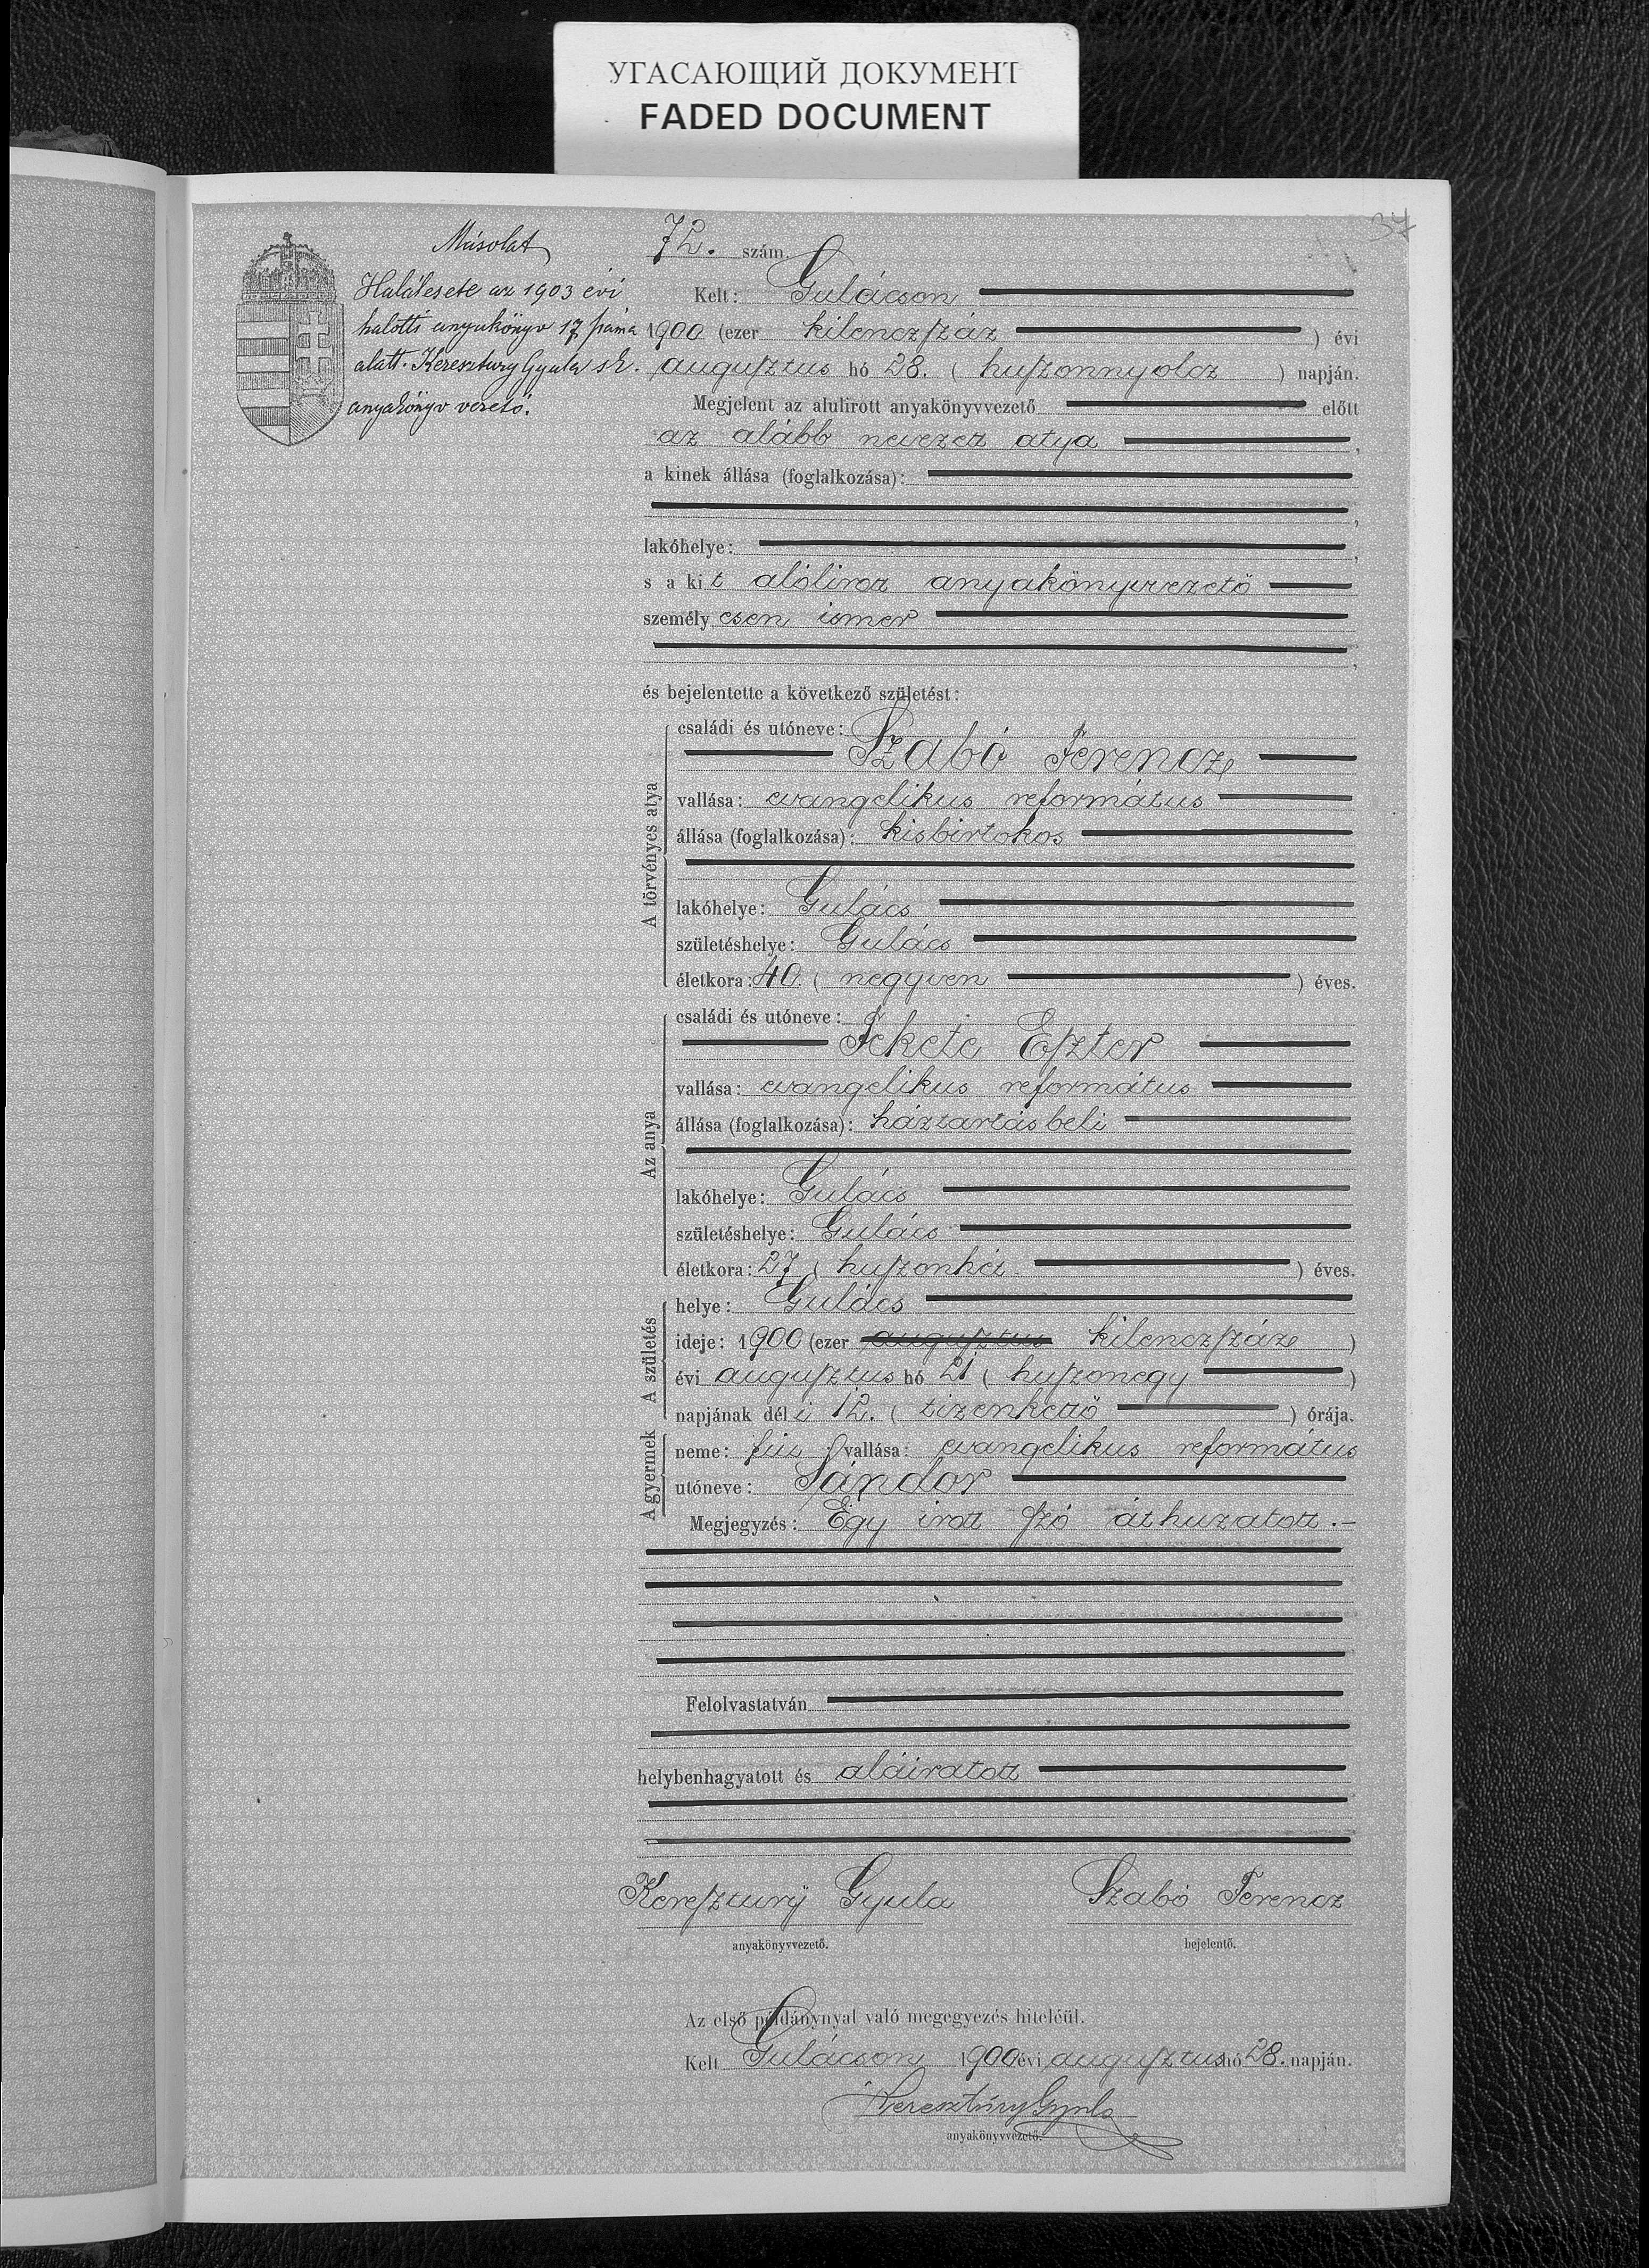 УГАСАЮЩИЙ ДОКУМЕНТ
FADED DOCUMENT
37
Másolat
Halálesete az 1903 évi
halotti anyakönyv 17 száma
alatt. Keresztury Gyula sk.
anyakönyv vezető.
72. szám.
Kelt: Gulácson
1900 (ezer kilenczszáz ) évi
augusztus hó 28. ( huszonnyolcz ) napján.
Megjelent az alulirott anyakönyvvezető előtt
az alább nevezett atya ,
a kinek állása (foglalkozása):
,
lakóhelye: ,
s a kit alólirott anyakönyvvezető
személyesen ismer
,
és bejelentette a következő születést:
A törvényes atya
családi és utóneve:
Szabó Ferencz
vallása: evangelikus református
állása (foglalkozása): kisbirtokos
lakóhelye: Gulács
születéshelye: Gulács
életkora: 40. ( negyven ) éves.
Az anya
családi és utóneve:
Fekete Eszter
vallása: evangelikus református
állása (foglalkozása): háztartásbeli
lakóhelye: Gulács
születéshelye: Gulács
életkora: 27 ( huszonhét ) éves.
A születés
helye: Gulács
ideje: 1900 (ezer augusztus kilenczszáz )
évi augusztus hó 21 ( huszonegy )
napjának déli 12. ( tizenkettő ) órája.
A gyermek
neme: fiú vallása: evangelikus református
utóneve: Sándor
Megjegyzés: Egy irott szó áthuzatott.-
Felolvastatván
helybenhagyatott és aláiratott
Keresztury Gyula Szabó Ferencz
anyakönyvvezető. bejelentő.
Az első példánynyal való megegyezés hiteléül.
Kelt Gulácson 1900 évi augusztus hó 28. napján.
Keresztúry Gyula
anyakönyvvezető.